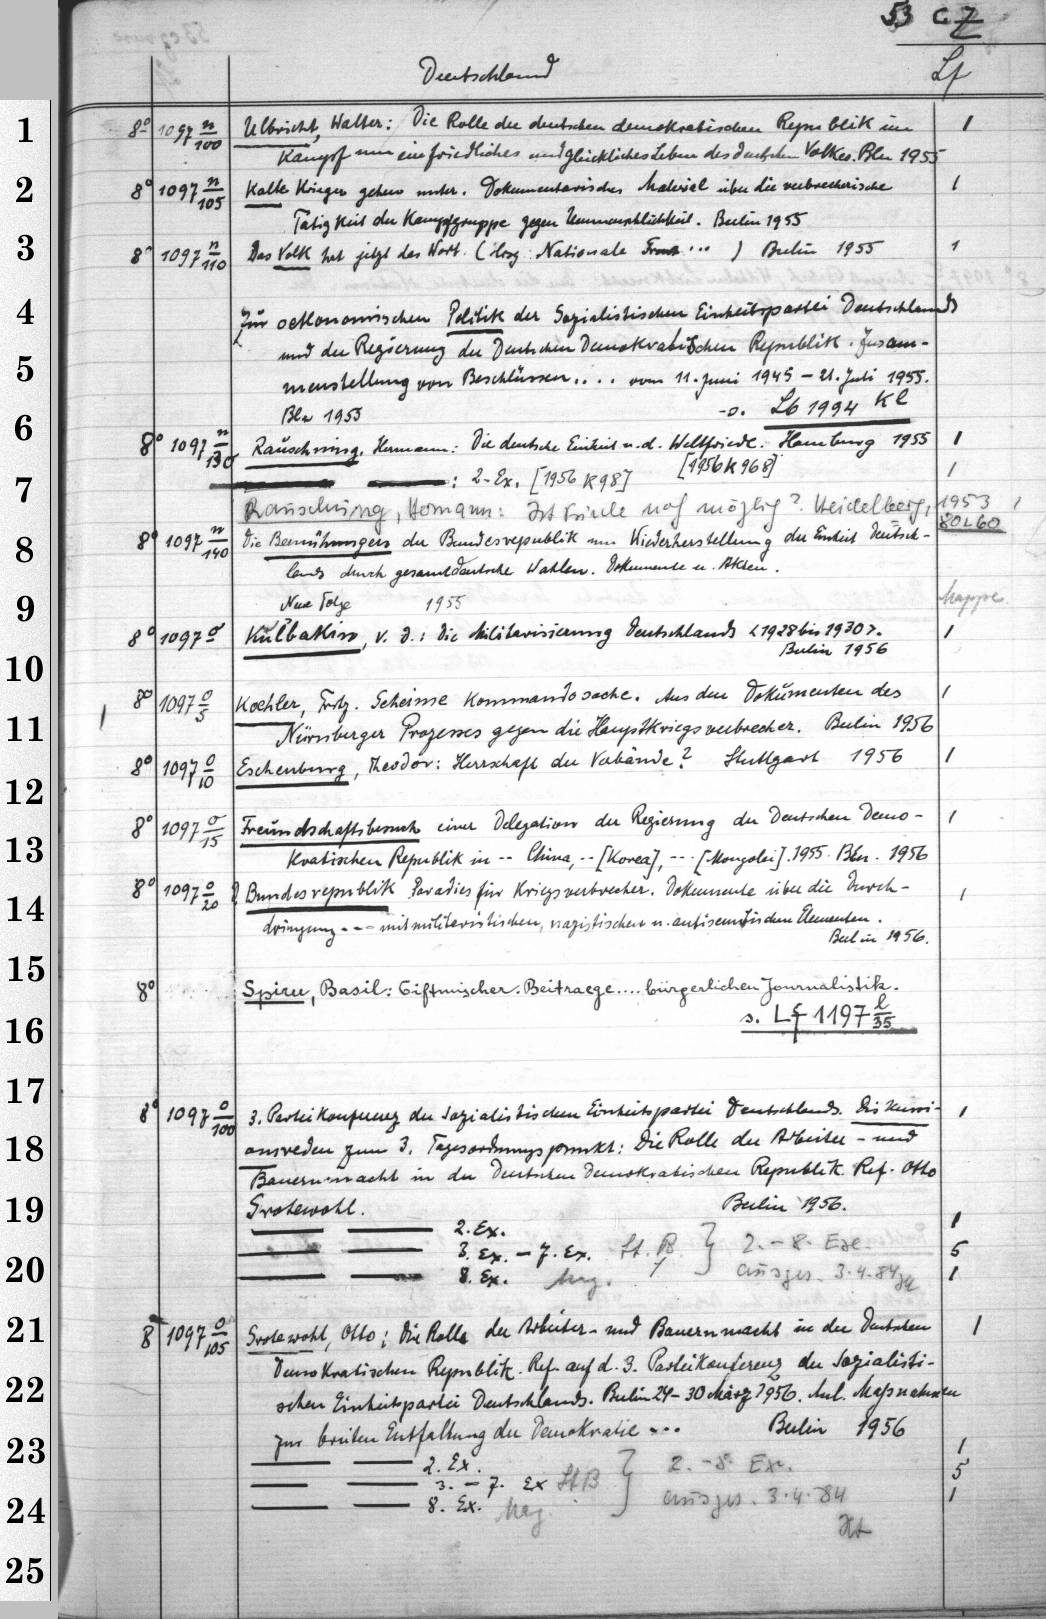 53 c 7
Deutschland Lf
8° 1097 n/100 Ulbricht, Walter: Die Rolle der deutschen demokratischen Republik im 1
Kampf um ein friedliches und glückliches Leben des deutschen Volkes. Bln 1955
8° 1097 n/105 Kalte Krieger gehen unter. Dokumentarisches Material über die verbrecherische 1
Tätigkeit der Kampfgruppe gegen Unmenschlichkeit. Berlin 1955
8° 1097 n/110 Das Volk hat jetzt das Wort. (Hrsg: Nationale Front ... ) Berlin 1955 1
Zur oekonomischen Politik der Sozialistischen Einheitspartei Deutschlands
und der Regierung der Deutschen Demokratischen Republik. Zusam-
menstellung von Beschlüssen.... vom 11. Juni 1945 – 21. Juli 1955.
Bln 1955 s. Lb 1994 Kl
8° 1097 n/130 Rauschning, Hermann: Die deutsche Einheit u. d. Weltfriede. Hamburg 1955 1
[1956 K 968]
: 2. Ex. [1956 K 98] 1
Rauschning, Hermann: Ist Friede noch möglich? Heidelberg, 1953 1
80 L 60
8° 1097 n/140 Die Bemühungen der Bundesrepublik um Wiederherstellung der Einheit Deutsch-
lands durch gesamtdeutsche Wahlen. Dokumente u. Akten.
Neue Folge 1955 Mappe
8° 1097 o Kulbakin, V. D.: Die Militarisierung Deutschlands <1928 bis 1930>. 1
Berlin 1956
8° 1097 o/5 Koehler, Fritz. Geheime Kommandosache. Aus den Dokumenten des 1
Nürnberger Prozesses gegen die Hauptkriegsverbrecher. Berlin 1956
8° 1097 o/10 Eschenburg, Theodor: Herrschaft der Verbände? Stuttgart 1956 1
8° 1097 o/15 Freundschaftsbesuch einer Delegation der Regierung der Deutschen Demo- 1
kratischen Republik in -- China, -- [Korea], --- [Mongolei]. 1955. Bln. 1956
8° 1097 o/20 Bundesrepublik Paradies für Kriegsverbrecher. Dokumente über die Durch- 1
dringung --- mit militaristischen, nazistischen u. antisemitischen Elementen.
Berlin 1956.
8° Spiru, Basil: Giftmischer. Beitraege.... bürgerlichen Journalistik.
s. Lf 1197 l/35
8° 1097 o/100 3. Parteikonferenz der Sozialistischen Einheitspartei Deutschlands. Diskussi- 1
onsreden zum 3. Tagesordnungspunkt: Die Rolle der Arbeiter- und
Bauernmacht in der Deutschen Demokratischen Republik. Ref. Otto
Grotewohl. Berlin 1956.
2. Ex. 1
3. Ex. – 7. Ex. St. B } 2. – 8. Ex. 5
8. Ex. Mag. ausges. 3.4.84 1
8° 1097 o/105 Grotewohl, Otto: Die Rolle der Arbeiter- und Bauernmacht in der Deutschen 1
Demokratischen Republik. Ref. auf d. 3. Parteikonferenz der Sozialisti-
schen Einheitspartei Deutschlands. Berlin 24–30 März 1956. Anl. Maßnahmen
zur breiten Entfaltung der Demokratie ... Berlin 1956
2. Ex. 1
3. – 7. Ex StB } 2. – 8. Ex. 5
8. Ex. Mag. ausges. 3.4.84 1
1
2
3
4
5
6
7
8
9
10
11
12
13
14
15
16
17
18
19
20
21
22
23
24
25